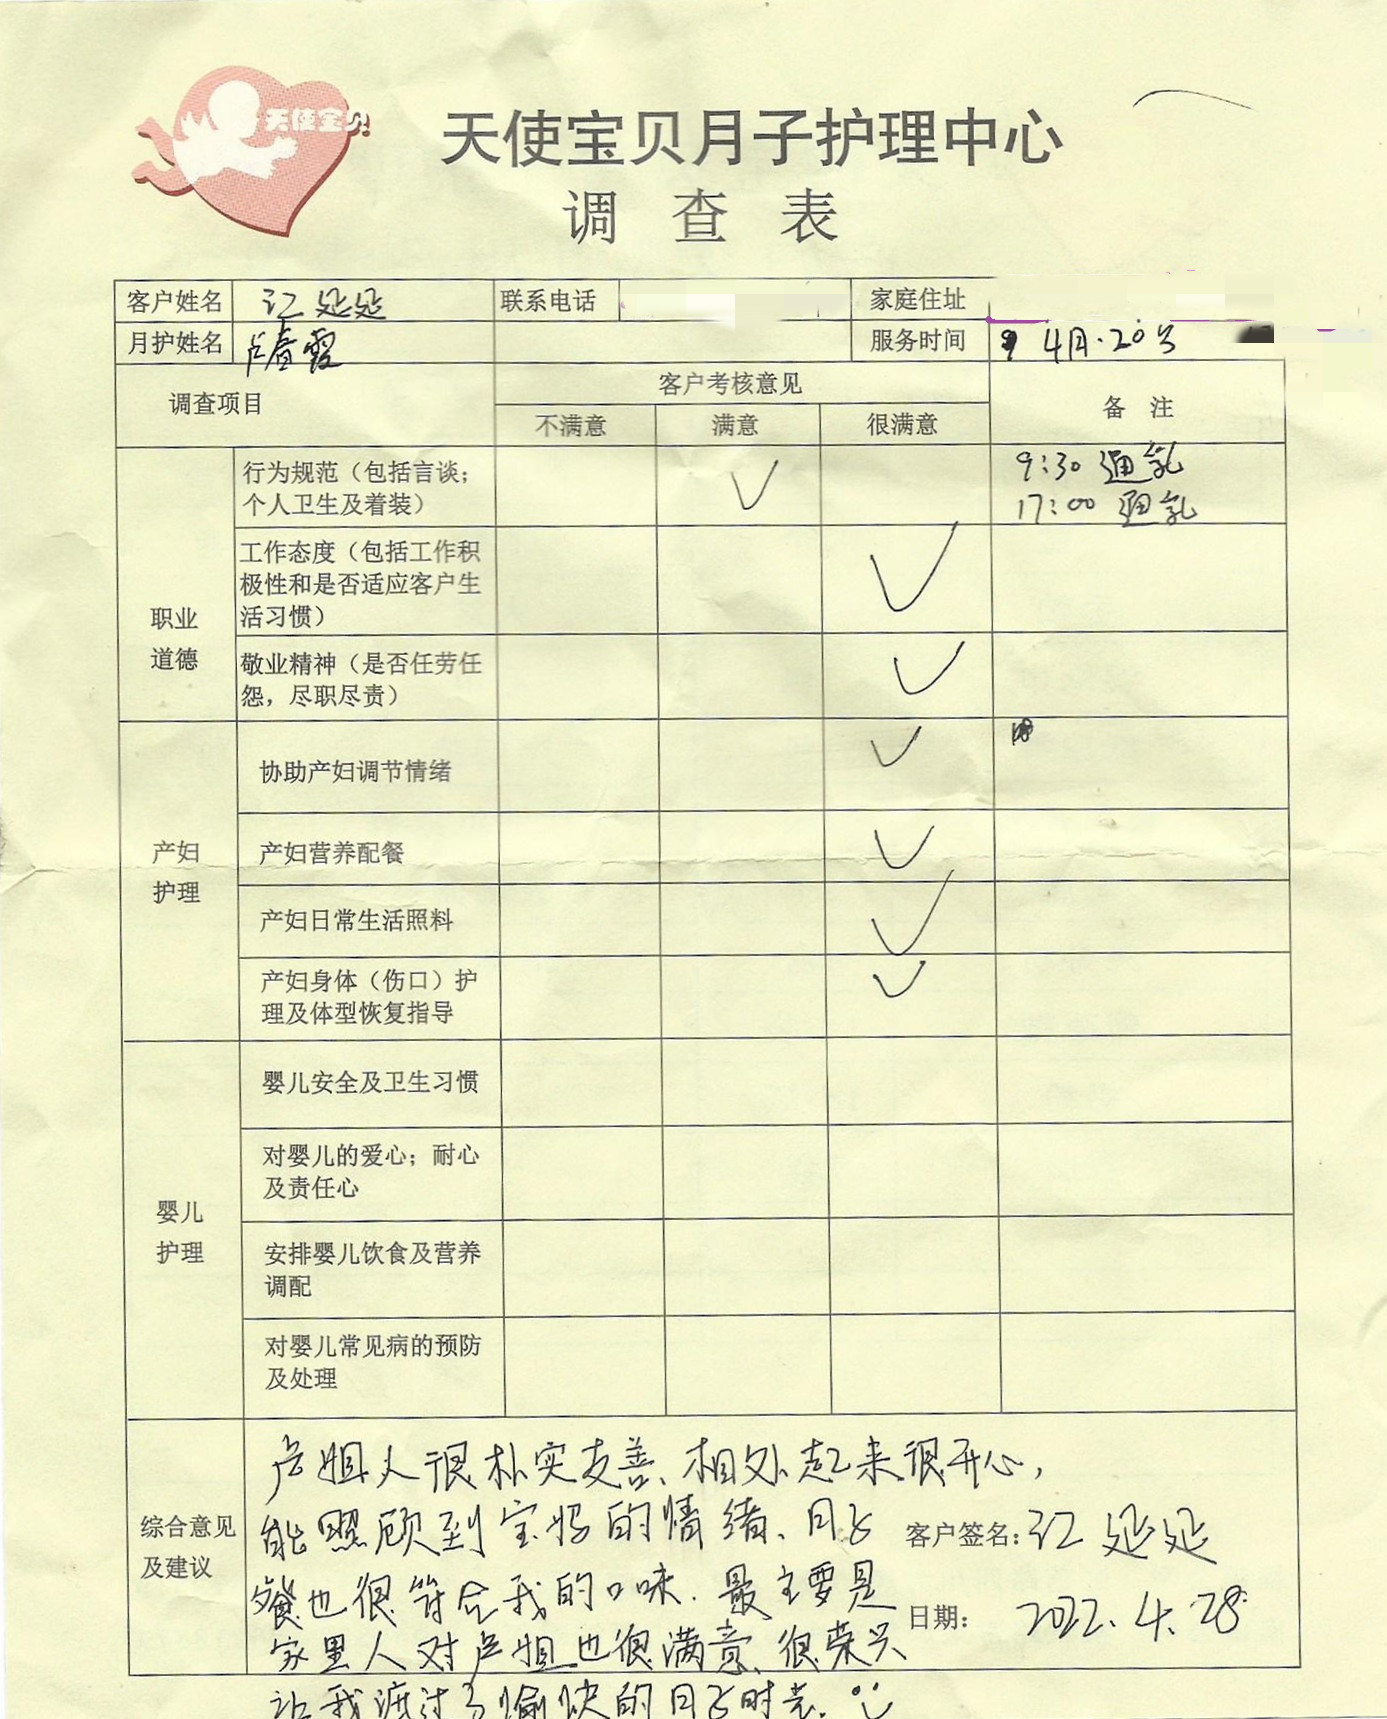 天使宝贝
天使宝贝月子护理中心
调 查 表
客户姓名 江延延 联系电话 家庭住址
月护姓名 卢春霞 服务时间 4月·20号
调查项目 客户考核意见 备 注
不满意 满意 很满意
职业
道德
行为规范（包括言谈；
个人卫生及着装）
✓
9:30 通乳
17:00 通乳
工作态度（包括工作积
极性和是否适应客户生
活习惯）
✓
敬业精神（是否任劳任
怨，尽职尽责）
✓
产妇
护理
协助产妇调节情绪 ✓
产妇营养配餐 ✓
产妇日常生活照料 ✓
产妇身体（伤口）护
理及体型恢复指导
✓
婴儿
护理
婴儿安全及卫生习惯
对婴儿的爱心；耐心
及责任心
安排婴儿饮食及营养
调配
对婴儿常见病的预防
及处理
综合意见
及建议
卢姐人很朴实友善、相处起来很开心，
能照顾到宝妈的情绪、月子
餐也很符合我的口味．最主要是
家里人对卢姐也很满意、很荣兴
让我渡过了愉快的月子时光．
客户签名：江延延
日期： 2022.4.28